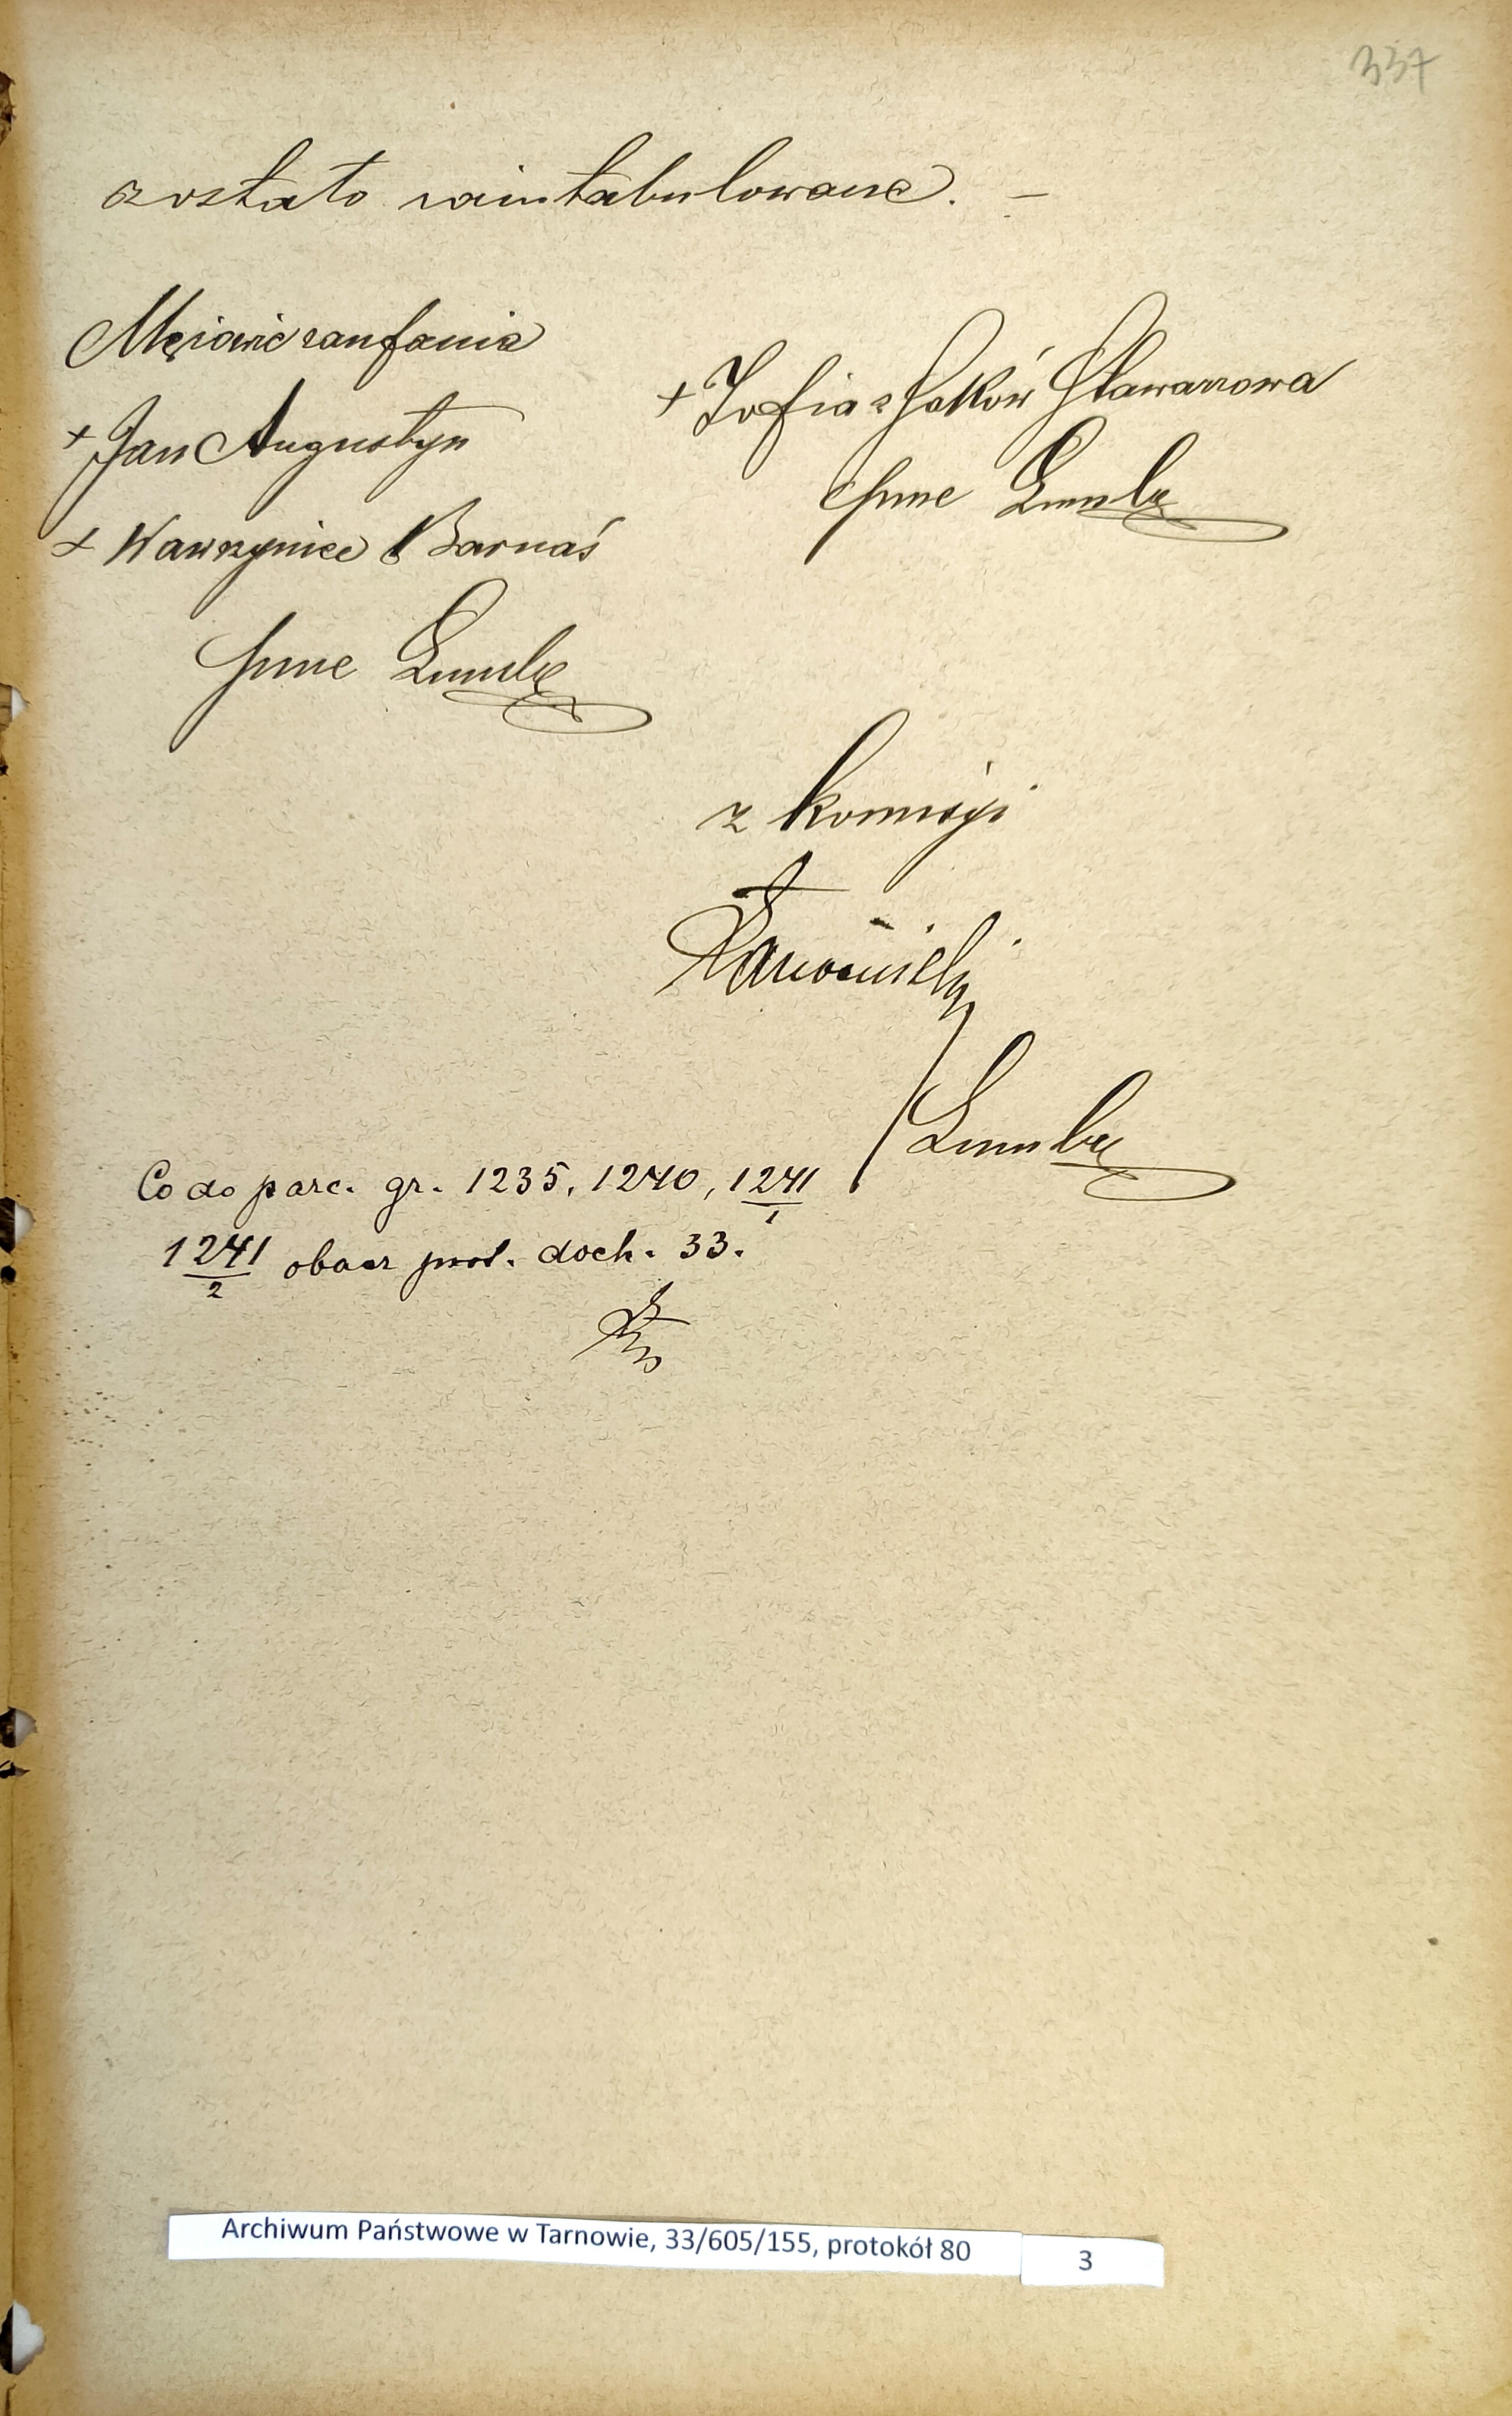 337
zostało zaintabulowane. —
Mężowie zaufania
+ Jan Augustyn
+ Wawrzyniec Barnaś
+ Zofia z Sottków Stawarzowa
z komisyi
Co do parc. gr. 1235, 1240, 1241/1
1241/2 obacz prot. doch. 33.
Archiwum Państwowe w Tarnowie, 33/605/155, protokół 80
3